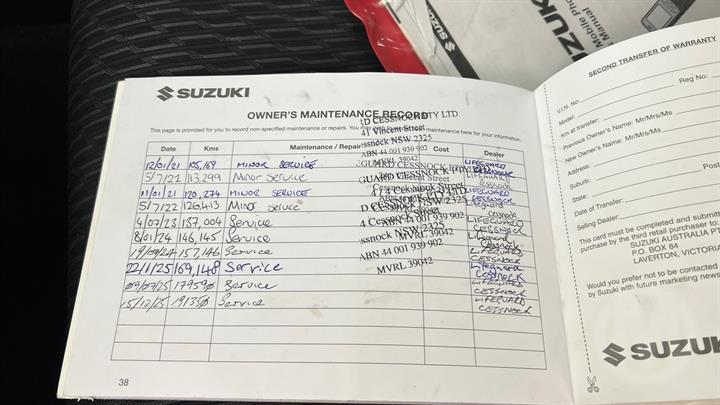 SUZUKI
Mobile Pho
Manual
SUZUKI
SUZUKI
OWNER'S MAINTENANCE RECORD PTY LTD
This page is provided for you to record non-specified maintenance or repairs. You may maintenance here for your information.
Date Kms Maintenance / Repair Cost Dealer
12/01/21 105,169 MINOR SERVICE LIFEGUARD CESSNOCK
5/7/21 113,299 Minor Service Lifeguard Cessnock
11/01/21 120,274 MINOR SERVICE LIFEGUARD CESSNOCK
5/7/22 126,413 Minor Service Lifeguard Cessnock
4/07/23 137,004 Service LIFEGUARD CESSNOCK
8/01/24 146,145 Service Lifeguard Cessnock
19/07/24 157,146 Service LIFEGUARD CESSNOCK
22/1/25 169,148 Service Lifeguard Cessnock
09/07/25 179590 Service LIFEGUARD CESSNOCK
15/12/25 191350 Service LIFEGUARD CESSNOCK
D CESSNOCK
41 Vincent Street
essnock NSW 2325
ABN 44 001 939 902
MVRL 39042
GUARD CESSNOCK
Cessnock Street
D CESSNOCK
NSW 2325
ABN 44 001 939 902
ssnock NSW 2325
MVRL 39042
ABN 44 001 939 902
MVRL 39042
38
SECOND TRANSFER OF WARRANTY
V.I.N. No:
Reg No:
Model:
Km at transfer:
Previous Owner's Name: Mr/Mrs/Ms
New Owner's Name: Mr/Mrs/Ms
Address:
Suburb:
Post
State:
Date of Transfer:
Selling Dealer:
This card must be completed and submitt
purchase by the third retail purchaser to:
SUZUKI AUSTRALIA PT
P.O. BOX 84
LAVERTON, VICTORIA
Would you prefer not to be contacted
by Suzuki with future marketing news
SUZUK